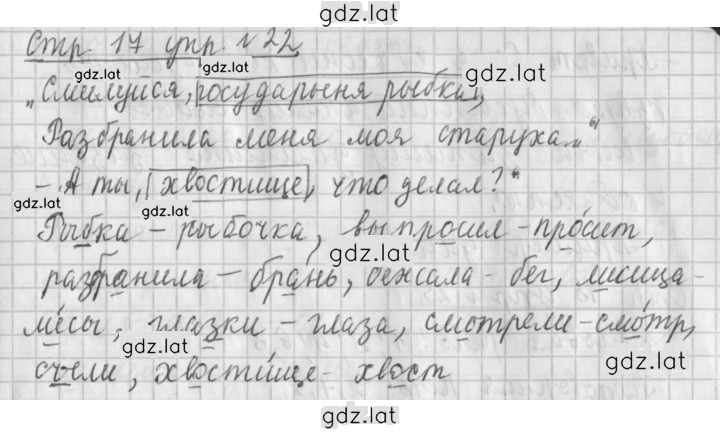 gdz.lat
Стр. 17 упр. №22
gdz.lat gdz.lat gdz.lat
„Смилуйся, государыня рыбка,
Разбранила меня моя старуха..."
- А ты, хвостище, что делал?"
gdz.lat gdz.lat
Рыбка - рыбочка, выпросил - просит,
gdz.lat
разбранила - брань, бежала - бег, лисица -
лисы, глазки - глаза, смотрели - смотр,
gdz.lat gdz.lat
съели, хвостище - хвост
gdz.lat